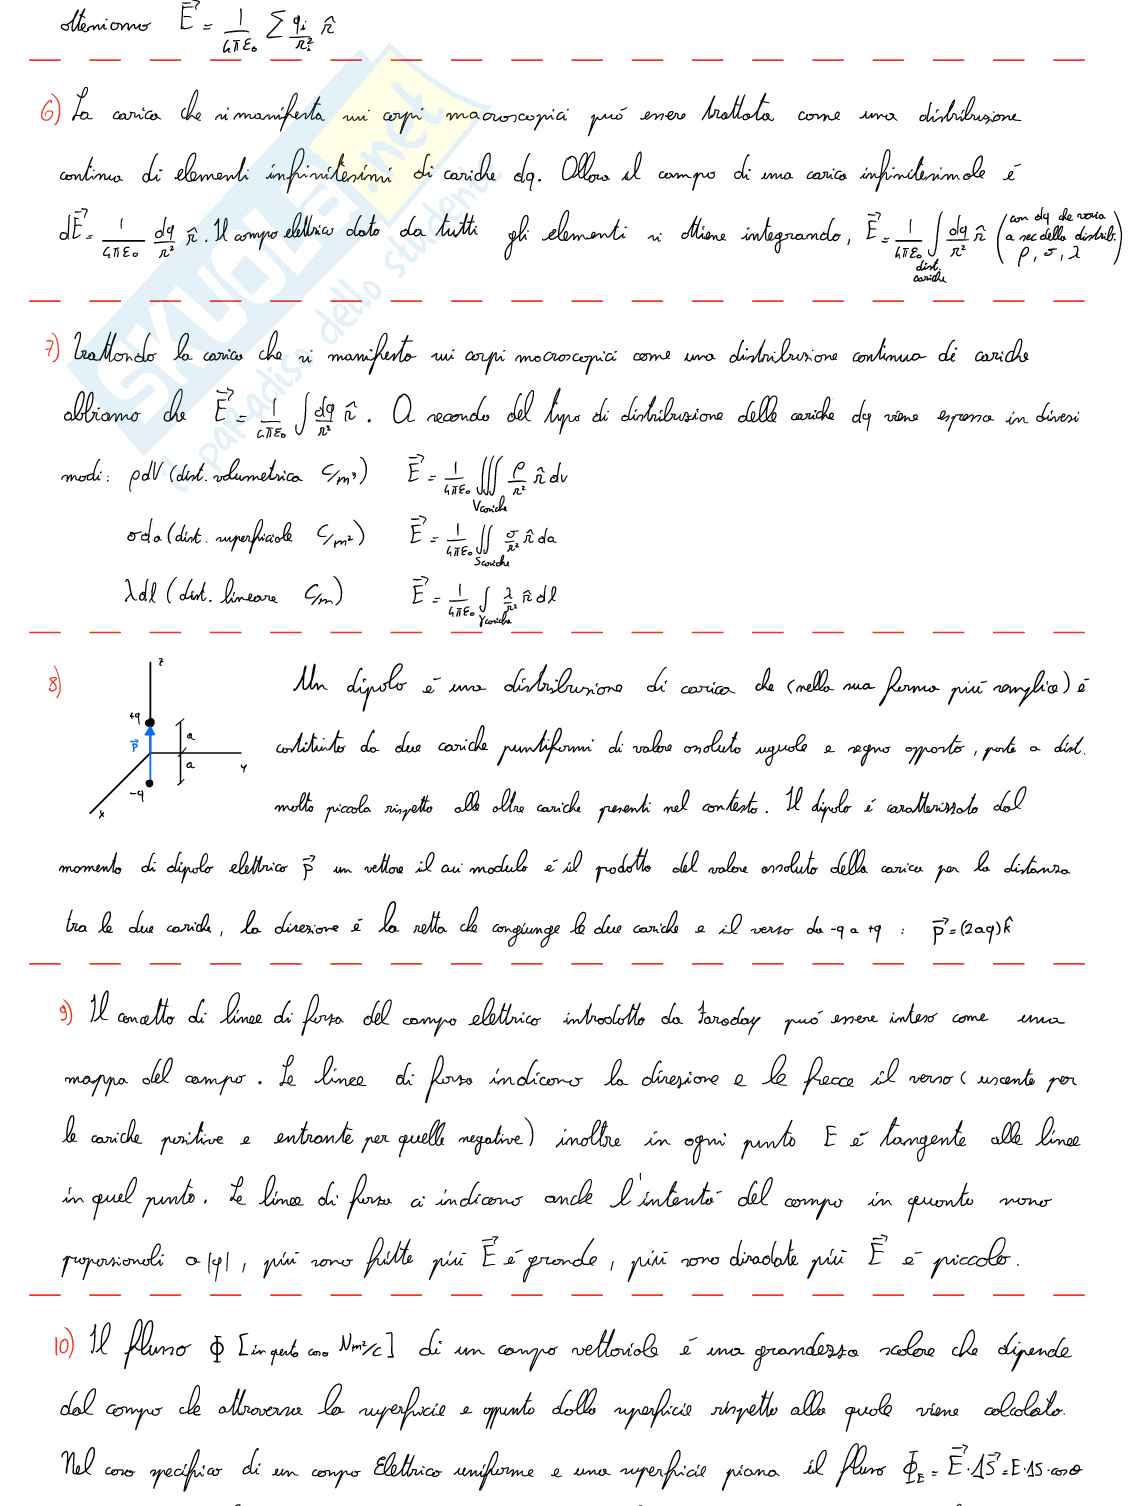 otteniamo E⃗ = 1/4πε₀ Σ qᵢ/rᵢ² r̂
6) La carica che si manifesta sui corpi macroscopici può essere trattata come una distribuzione
continua di elementi infinitesimi di cariche dq. Allora il campo di una carica infinitesimale è
dE⃗ = 1/4πε₀ dq/r² r̂. Il campo elettrico dato da tutti gli elementi si ottiene integrando, E⃗ = 1/4πε₀ ∫ dist. cariche dq/r² r̂ (con dq che varia a sec della distrib. ρ, σ, λ)
7) Trattando la carica che si manifesta sui corpi macroscopici come una distribuzione continua di cariche
abbiamo che E⃗ = 1/4πε₀ ∫ dq/r² r̂. A secondo del tipo di distribuzione delle cariche dq viene espressa in diversi
modi: ρdV (dist. volumetrica C/m³) E⃗ = 1/4πε₀ ∭ Vcariche ρ/r² r̂ dv
σda (dist. superficiale C/m²) E⃗ = 1/4πε₀ ∬ Scariche σ/r² r̂ da
λdl (dist. lineare C/m) E⃗ = 1/4πε₀ ∫ γcariche λ/r² r̂ dl
8)
z
+q
p⃗
a
a
y
-q
x
Un dipolo è una distribuzione di carica che (nella sua forma più semplice) è
costituito da due cariche puntiformi di valore assoluto uguale e segno opposto, poste a dist.
molto piccola rispetto alle altre cariche presenti nel contesto. Il dipolo è caratterizzato dal
momento di dipolo elettrico p⃗ un vettore il cui modulo è il prodotto del valore assoluto della carica per la distanza
tra le due cariche, la direzione è la retta che congiunge le due cariche e il verso da -q a +q : p⃗ = (2aq) k̂
9) Il concetto di linee di forza del campo elettrico introdotto da Faraday può essere inteso come una
mappa del campo. Le linee di forza indicano la direzione e le frecce il verso (uscente per
le cariche positive e entrante per quelle negative) inoltre in ogni punto E è tangente alle linee
in quel punto. Le linee di forza ci indicano anche l'intentà del campo in quanto sono
proporzionali a |q|, più sono fitte più E⃗ è grande, più sono diradate più E⃗ è piccolo.
10) Il flusso Φ [in questo caso Nm²/C] di un campo vettoriale è una grandezza scalare che dipende
dal campo che attraversa la superficie e appunto dalla superficie rispetto alla quale viene calcolato.
Nel caso specifico di un campo Elettrico uniforme e una superficie piana il flusso Φ_E = E⃗·ΔS⃗ = E·ΔS·cosθ
SKUOLA.net
il paradiso dello studente